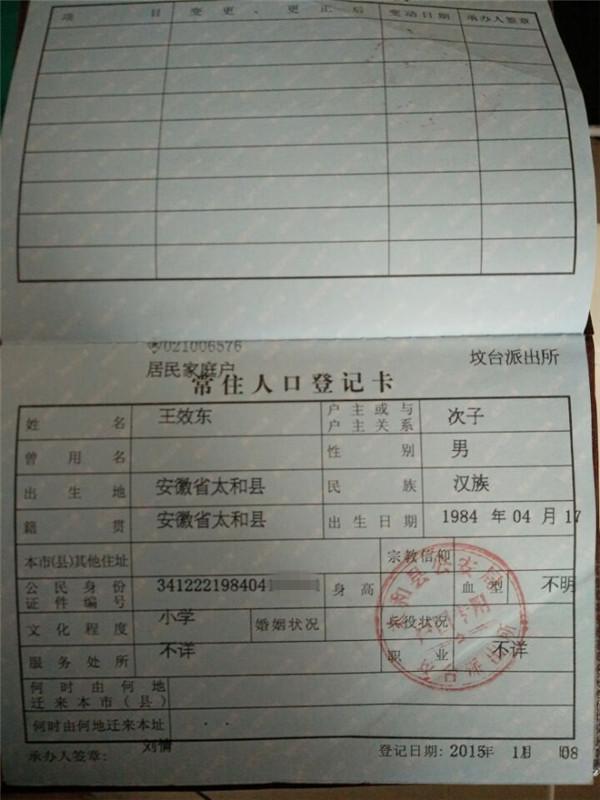 项 目 变更、更正后 变动日期 承办人签章
021006576
居民家庭户 坟台派出所
常住人口登记卡
姓名 王效东 户主或与户主关系 次子
曾用名 性别 男
出生地 安徽省太和县 民族 汉族
籍贯 安徽省太和县 出生日期 1984 年 04 月 17
本市(县)其他住址 宗教信仰
公民身份证件编号 341222198404 身高 血型 不明
文化程度 小学 婚姻状况 兵役状况
服务处所 不详 职业 不详
何时由何地迁来本市(县)
何时由何地迁来本址
承办人签章: 刘倩 登记日期: 2015年 11月 08